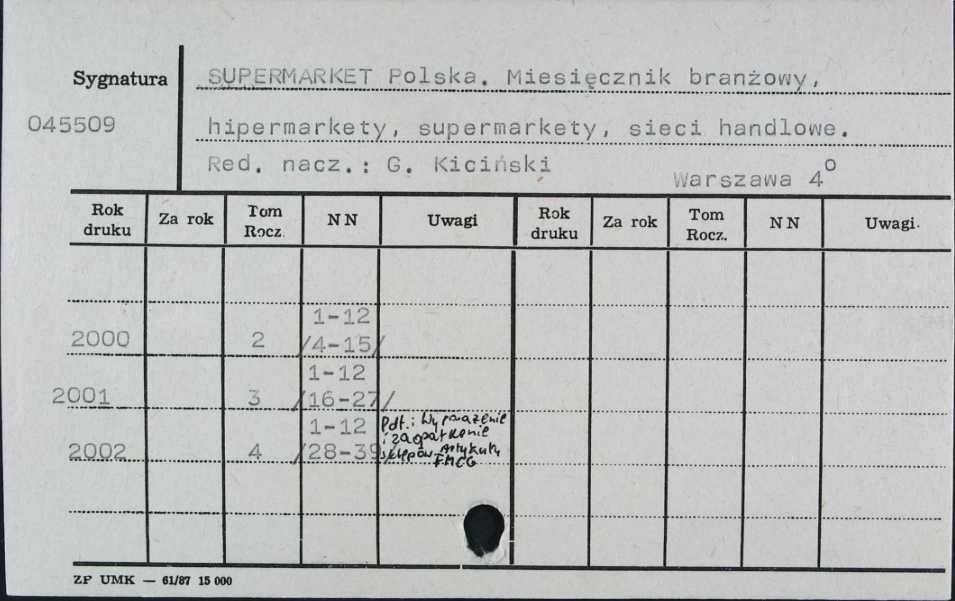 Sygnatura
SUPERMARKET Polska. Miesięcznik branżowy,
045509
hipermarkety, supermarkety, sieci handlowe.
Red. nacz.: G. Kiciński
Warszawa 4°
Rok druku Za rok Tom Rocz. NN Uwagi Rok druku Za rok Tom Rocz. NN Uwagi.
1-12
2000 2 /4-15/
1-12
2001 3 /16-27/
1-12
2002 4 /28-39/
Pdt.: Wyposażenie
i zaopatrzenie
sklepów. Artykuły
FMCG
ZP UMK — 61/87 15 000